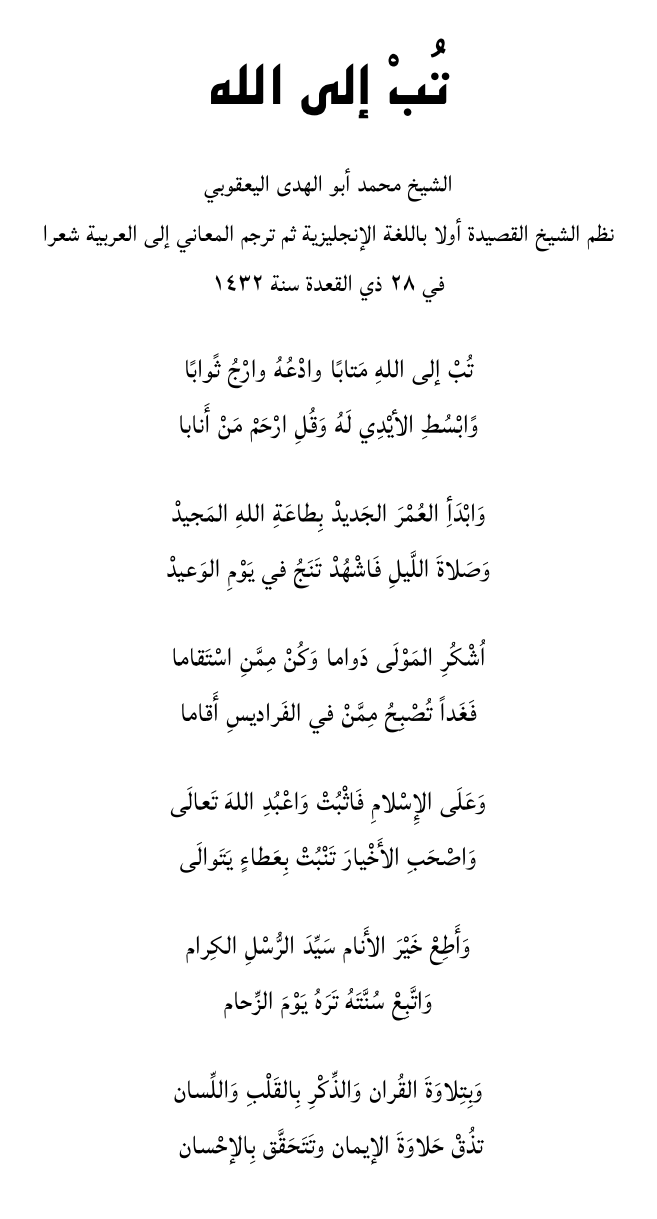 تُبْ إلى الله
الشيخ محمد أبو الهدى اليعقوبي
نظم الشيخ القصيدة أولا باللغة الإنجليزية ثم ترجم المعاني إلى العربية شعرا
في ٢٨ ذي القعدة سنة ١٤٣٢
تُبْ إلى اللهِ مَتابًا وادْعُهُ وارْجُ ثًوابًا
وًابْسُطِ الأيْدِي لَهُ وَقُلِ ارْحَمْ مَنْ أَنابا
وَابْدَأِ العُمْرَ الجَديدْ بِطاعَةِ اللهِ المَجيدْ
وَصَلاةَ اللَّيلِ فَاشْهُدْ تَنَجُ في يَوْمِ الوَعيدْ
اُشْكُرِ المَوْلَى دَواما وَكُنْ مِمَّنِ اسْتَقاما
فَغَداً تُصْبِحُ مِمَّنْ في الفَراديسِ أَقاما
وَعَلَى الإِسْلامِ فَاثْبُتْ وَاعْبُدِ اللهَ تَعالَى
وَاصْحَبِ الأَخْيارَ تَنْبُتْ بِعَطاءٍ يَتَوالَى
وَأَطِعْ خَيْرَ الأَنام سَيِّدَ الرُّسْلِ الكِرام
وَاتَّبِعْ سُنَّتَهُ تَرَهُ يَوْمَ الزِّحام
وَبِتِلاوَةَ القُران وَالذِّكْرِ بِالقَلْبِ وَاللِّسان
تذُقْ حَلاوَةَ الإيمان وتَتَحَقَّق بِالإحْسان